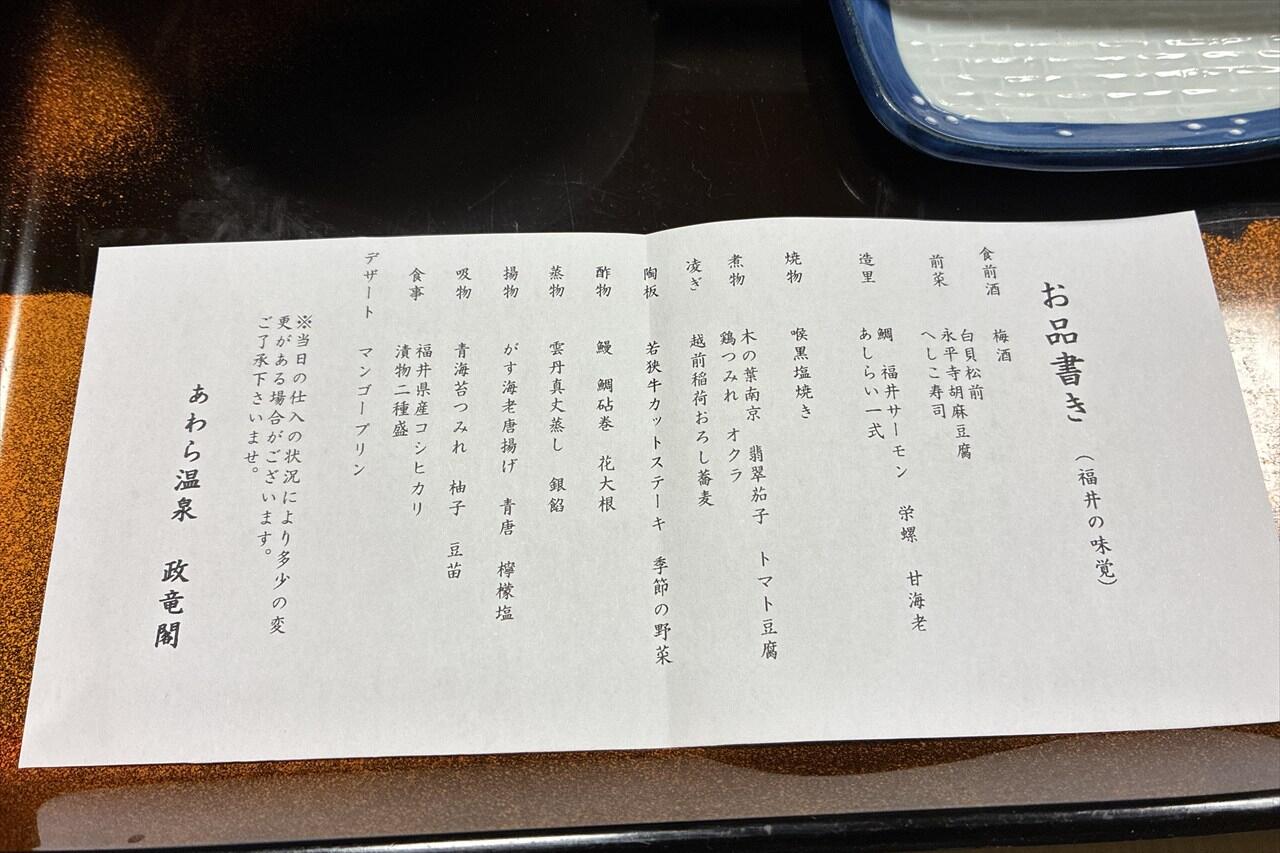 お品書き（福井の味覚）
食前酒　梅酒
前菜　白貝松前
永平寺胡麻豆腐
へしこ寿司
造里　鯛　福井サーモン　栄螺　甘海老
あしらい一式
焼物　喉黒塩焼き
煮物　木の葉南京　翡翠茄子　トマト豆腐
鶏つみれ　オクラ
凌ぎ　越前稲荷おろし蕎麦
陶板　若狭牛カットステーキ　季節の野菜
酢物　鰻　鯛砧巻　花大根
蒸物　雲丹真丈蒸し　銀餡
揚物　がす海老唐揚げ　青唐　檸檬塩
吸物　青海苔つみれ　柚子　豆苗
食事　福井県産コシヒカリ
漬物二種盛
デザート　マンゴープリン
※当日の仕入の状況により多少の変
更がある場合がございます。
ご了承下さいませ。
あわら温泉　政竜閣